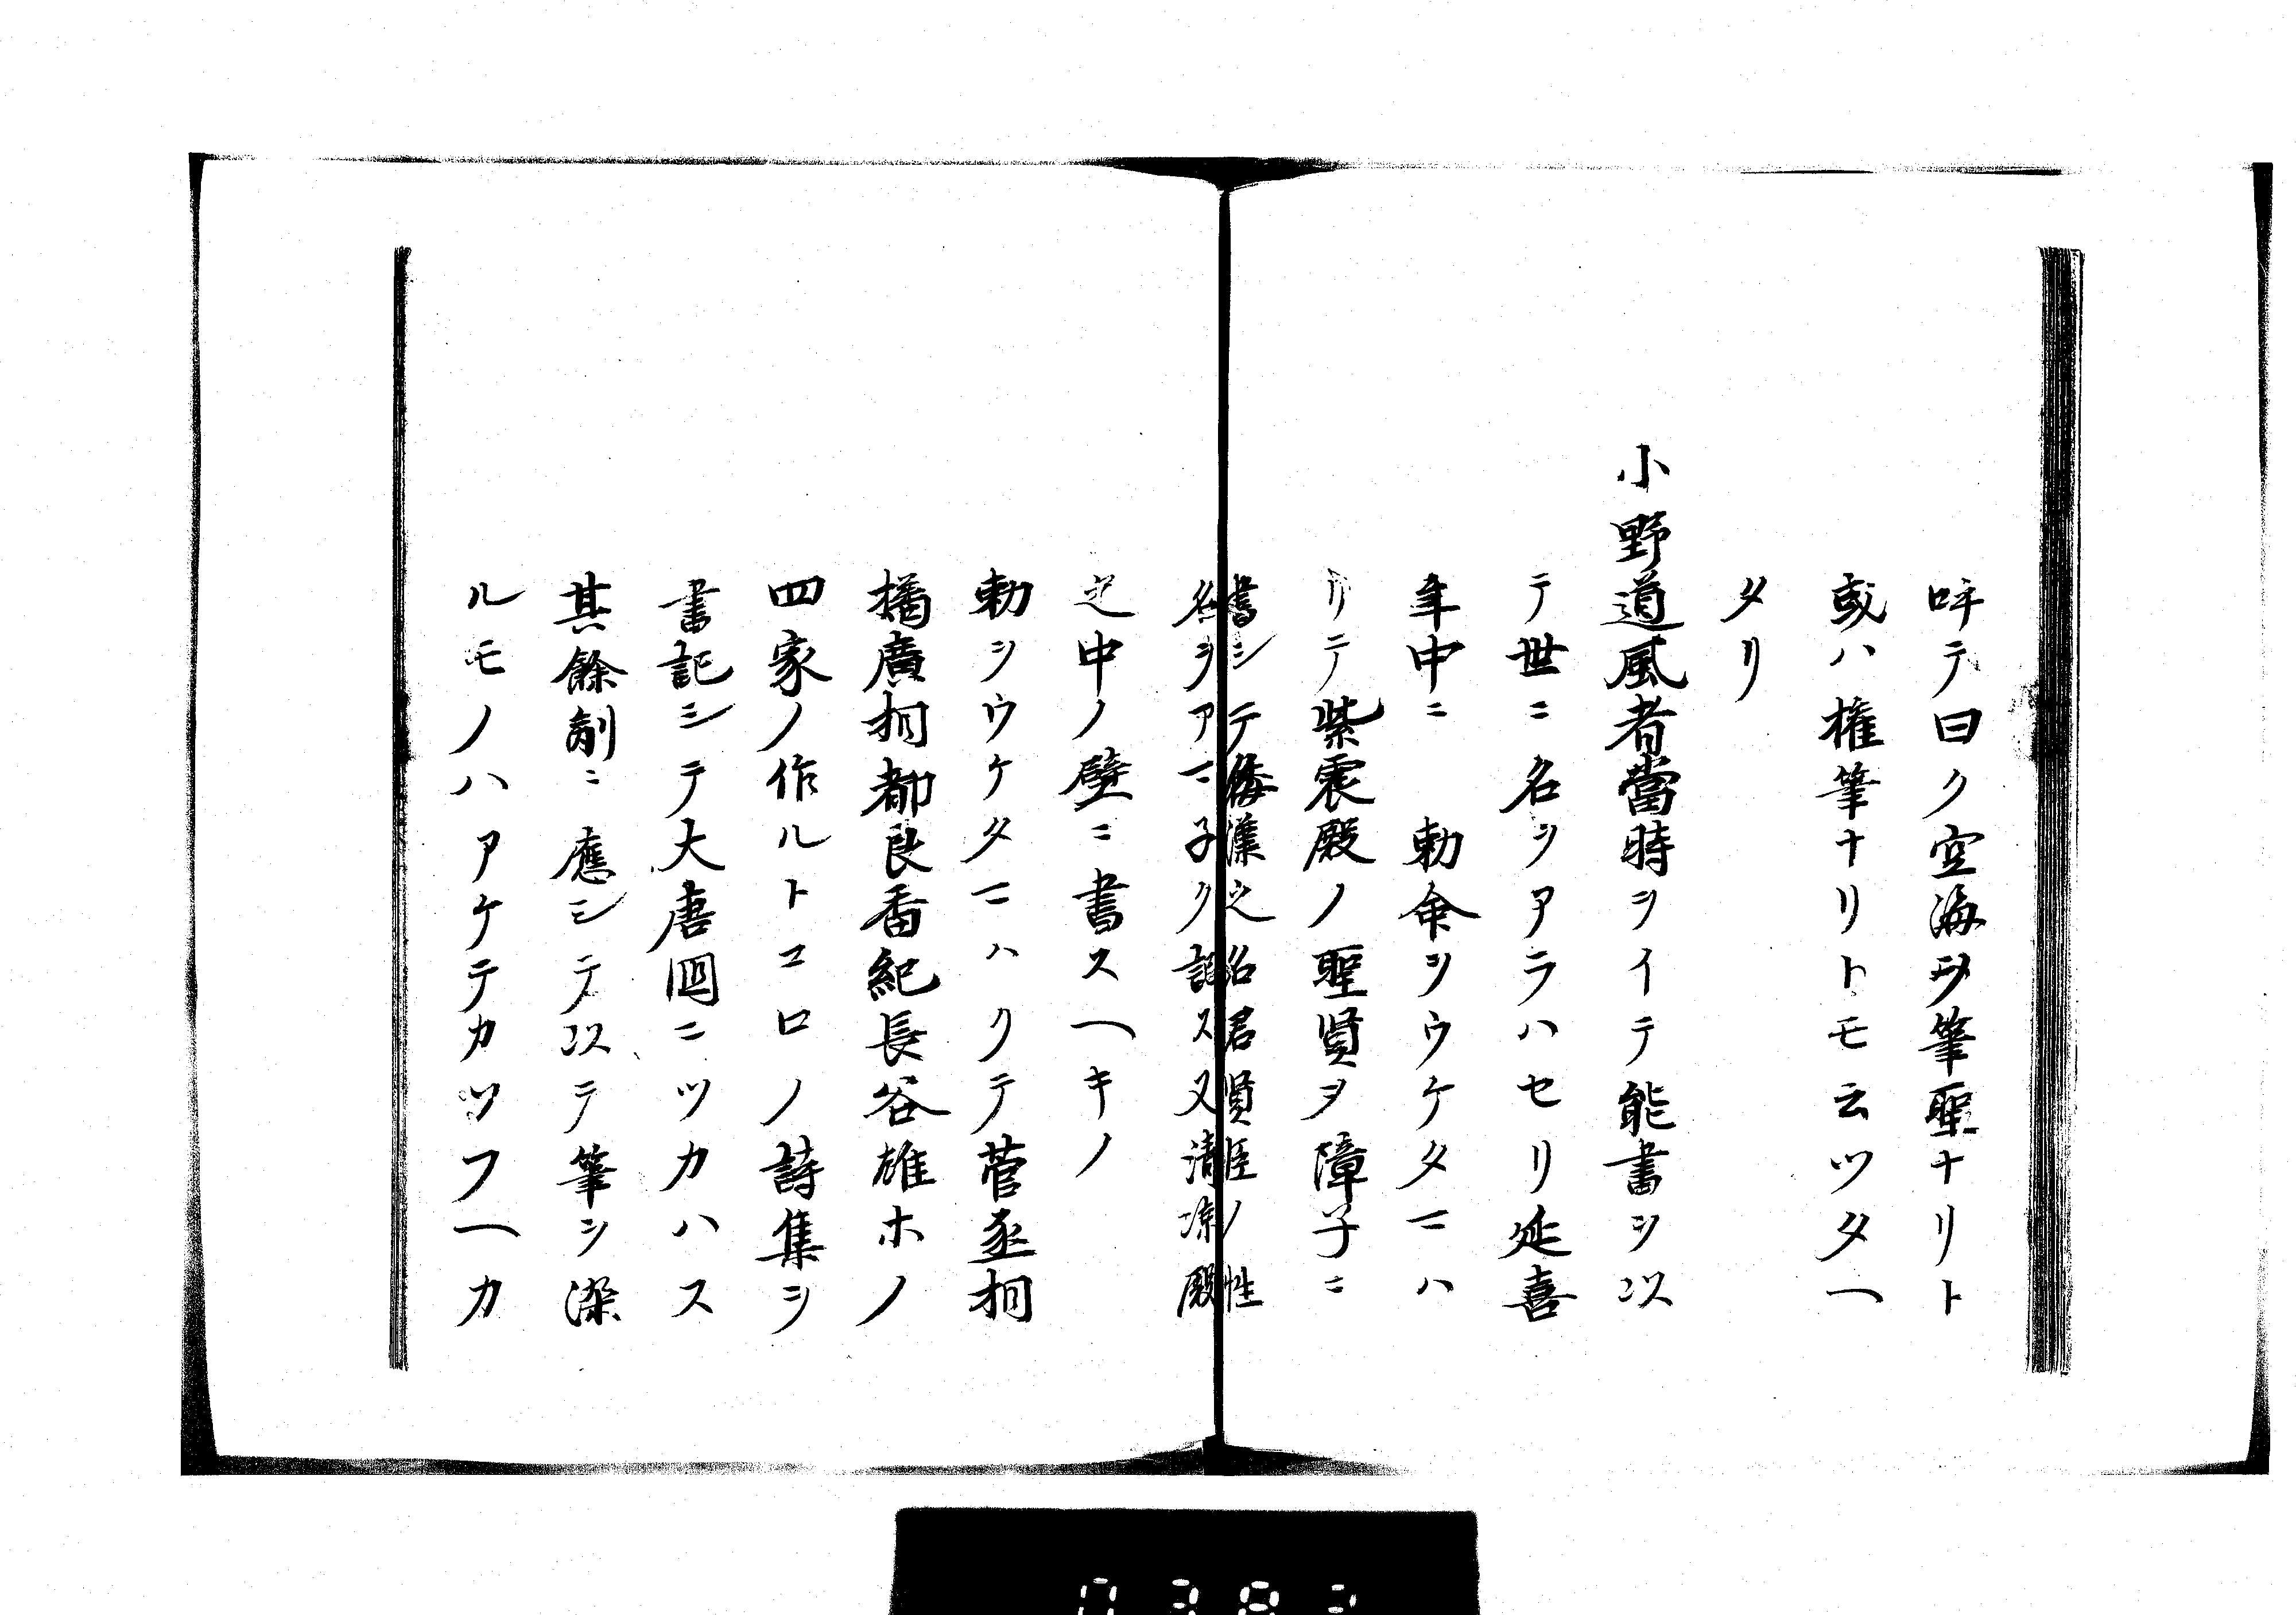 呼テ曰ク空海ヲ筆聖ナリト
或ハ権筆ナリトモ云ツタヘ
タリ
小野道風者當時ヲイテ能書ヲ以
テ世ニ名ヲアラハセリ延喜
年中ニ 勅命ヲウケタマハ
リテ紫震殿ノ聖賢ヲ障子ニ
書シテ倭漢之名君賢臣ノ性
名ヲアマ子ク記ス又清凉殿
之中ノ壁ニ書スヘキノ
勅ヲウケタマハリテ菅丞相
橘廣相都良香紀長谷雄ホノ
四家ノ作ルトコロノ詩集ヲ
書記シテ大唐國ニツカハス
其餘制ニ應シテ以テ筆ヲ染
ルモノハアケテカツフヘカ